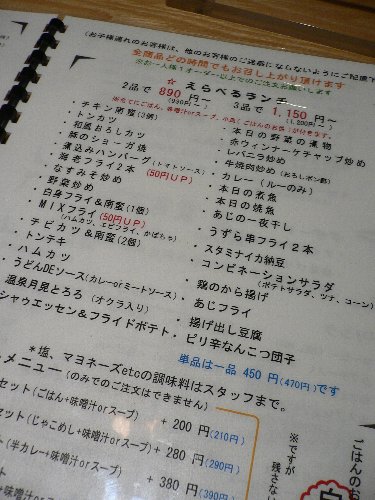 (お子様連れのお客様は、他のお客様のご迷惑にならないようにご配慮下
全商品どの時間でもお召し上がり頂けます
※お一人様1オーダー以上でのご注文お願いします
☆ えらべるランチ
2品で 890円~ 3品で 1,150円~
(930円~) (1,200円~)
・チキン南蛮(3個)
・トンカツ
・和風おろしカツ
・豚のショーガ焼
・煮込みハンバーグ(トマトソース)
・海老フライ2本 (50円UP)
・なすみそ炒め
・野菜炒め
・白身フライ&南蛮(1個)
・MIXフライ (50円UP)
(ハムカツ、エビフライ、かぼちゃ)
・チビカツ&南蛮(2個)
・トンテキ
・ハムカツ
・うどんDEソース(カレーorミートソース)
・温泉月見とろろ(オクラ入り)
シャウエッセン&フライドポテト
・本日の野菜の煮物
・赤ウィンナーケチャップ炒め
・レバニラ炒め
・牛焼肉炒め(おろしポン酢)
・カレー(ルーのみ)
・本日の煮魚
・本日の焼魚
・あじの一夜干し
・うずら串フライ2本
・スタミナイカ納豆
・コンビネーションサラダ
(ポテトサラダ、ツナ、コーン)
・鶏のから揚げ
・あじフライ
・揚げ出し豆腐
・ピリ辛なんこつ団子
単品は一品 450円(470円)です
*塩、マヨネーズetcの調味料はスタッフまで。
メニュー(のみでのご注文はできません)
セット(ごはん+味噌汁orスープ) +200円(210円)
ット(じゃこめし+味噌汁orスープ) +280円(290円)
(半カレー+味噌汁orスープ) +380円(390円)
味噌汁orスープ)
ごはんのお
※ですが
残さない